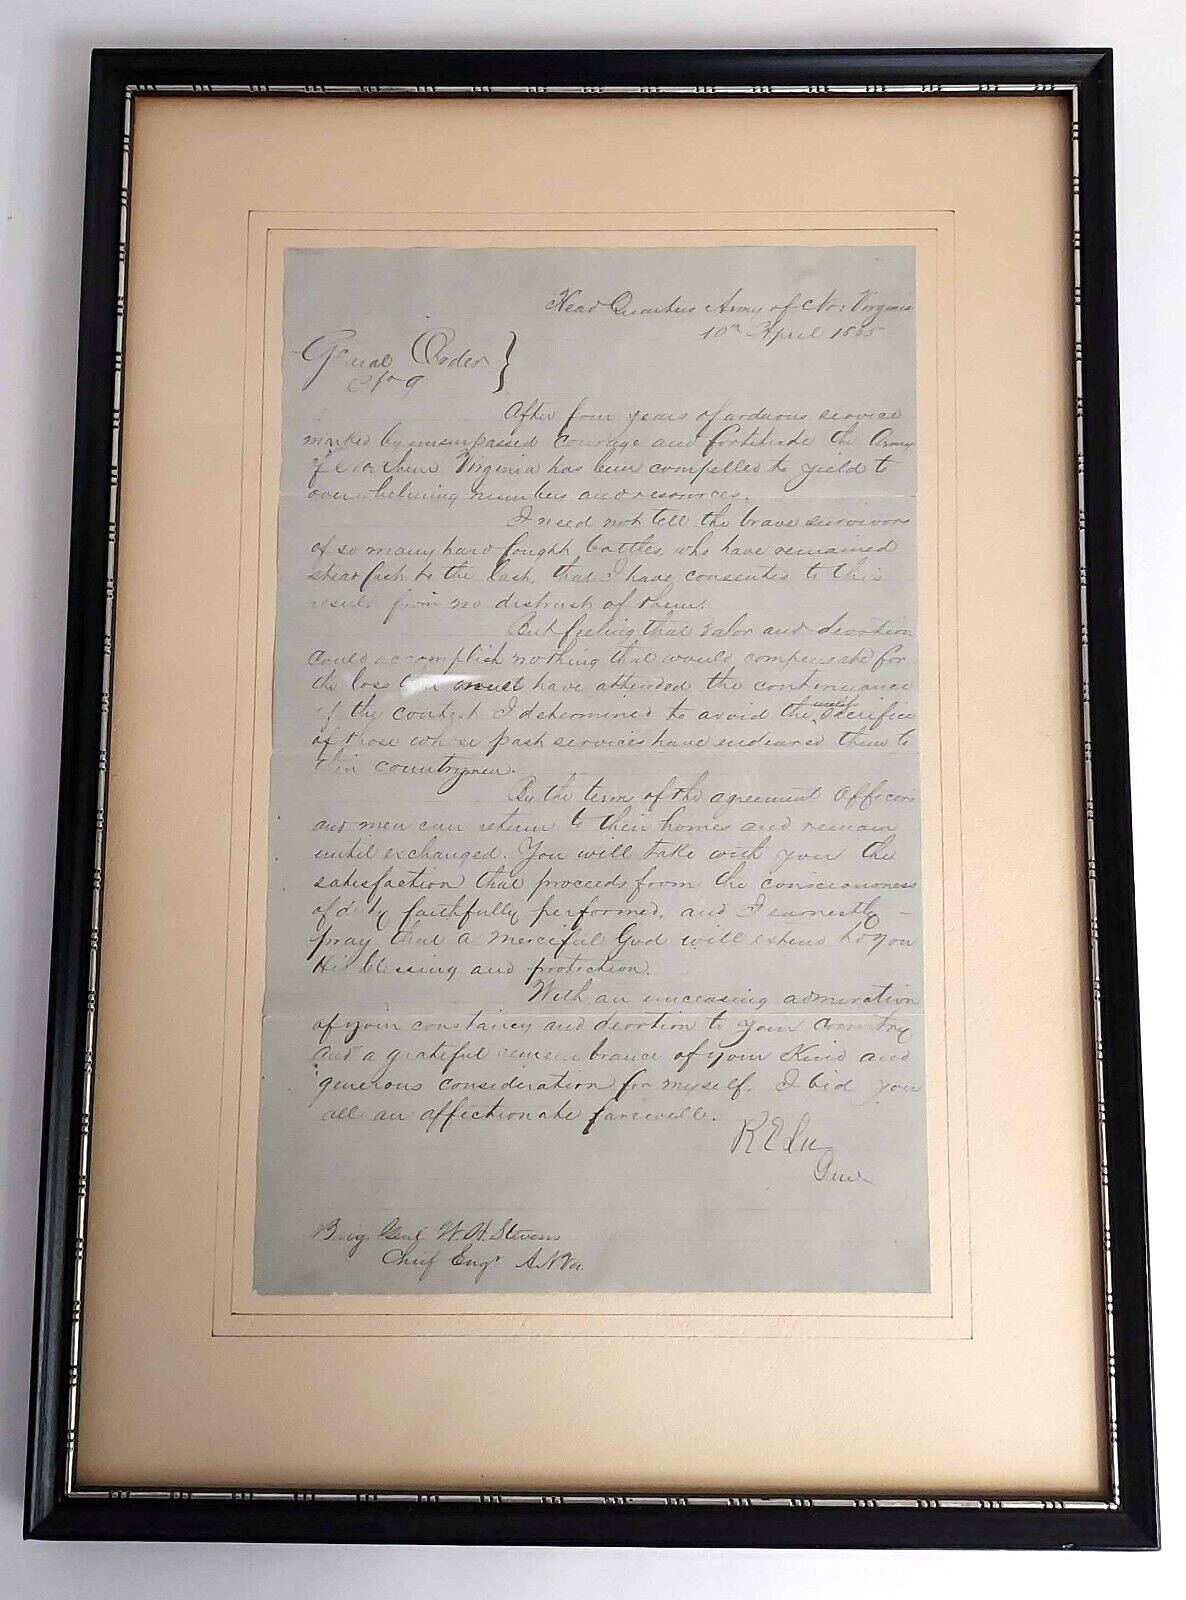 Head Quarters Army of No: Virginia
10th April 1865
General Order
No 9
After four years of arduous service
marked by unsurpassed courage and fortitude the Army
of Northern Virginia has been compelled to yield to
overwhelming numbers and resources.
I need not tell the brave survivors
of so many hard fought battles, who have remained
steadfast to the last, that I have consented to this
result from no distrust of them.
But feeling that valor and devotion
could accomplish nothing that would compensate for
the loss that must have attended the continuance
of the contest I determined to avoid the useless sacrifice
of those whose past services have endeared them to
their countrymen.
By the term of the agreement Officers
and men can return to their homes and remain
until exchanged. You will take with you the
satisfaction that proceeds from the consciousness
of duty faithfully performed, and I earnestly
pray that a merciful God will extend to you
His blessing and protection.
With an unceasing admiration
of your constancy and devotion to your Country,
and a grateful remembrance of your Kind and
generous consideration for myself. I bid you
all an affectionate farewell.
R E Lee
Genl
Brig Genl W. H. Stevens
Chief Engr A.N.Va.